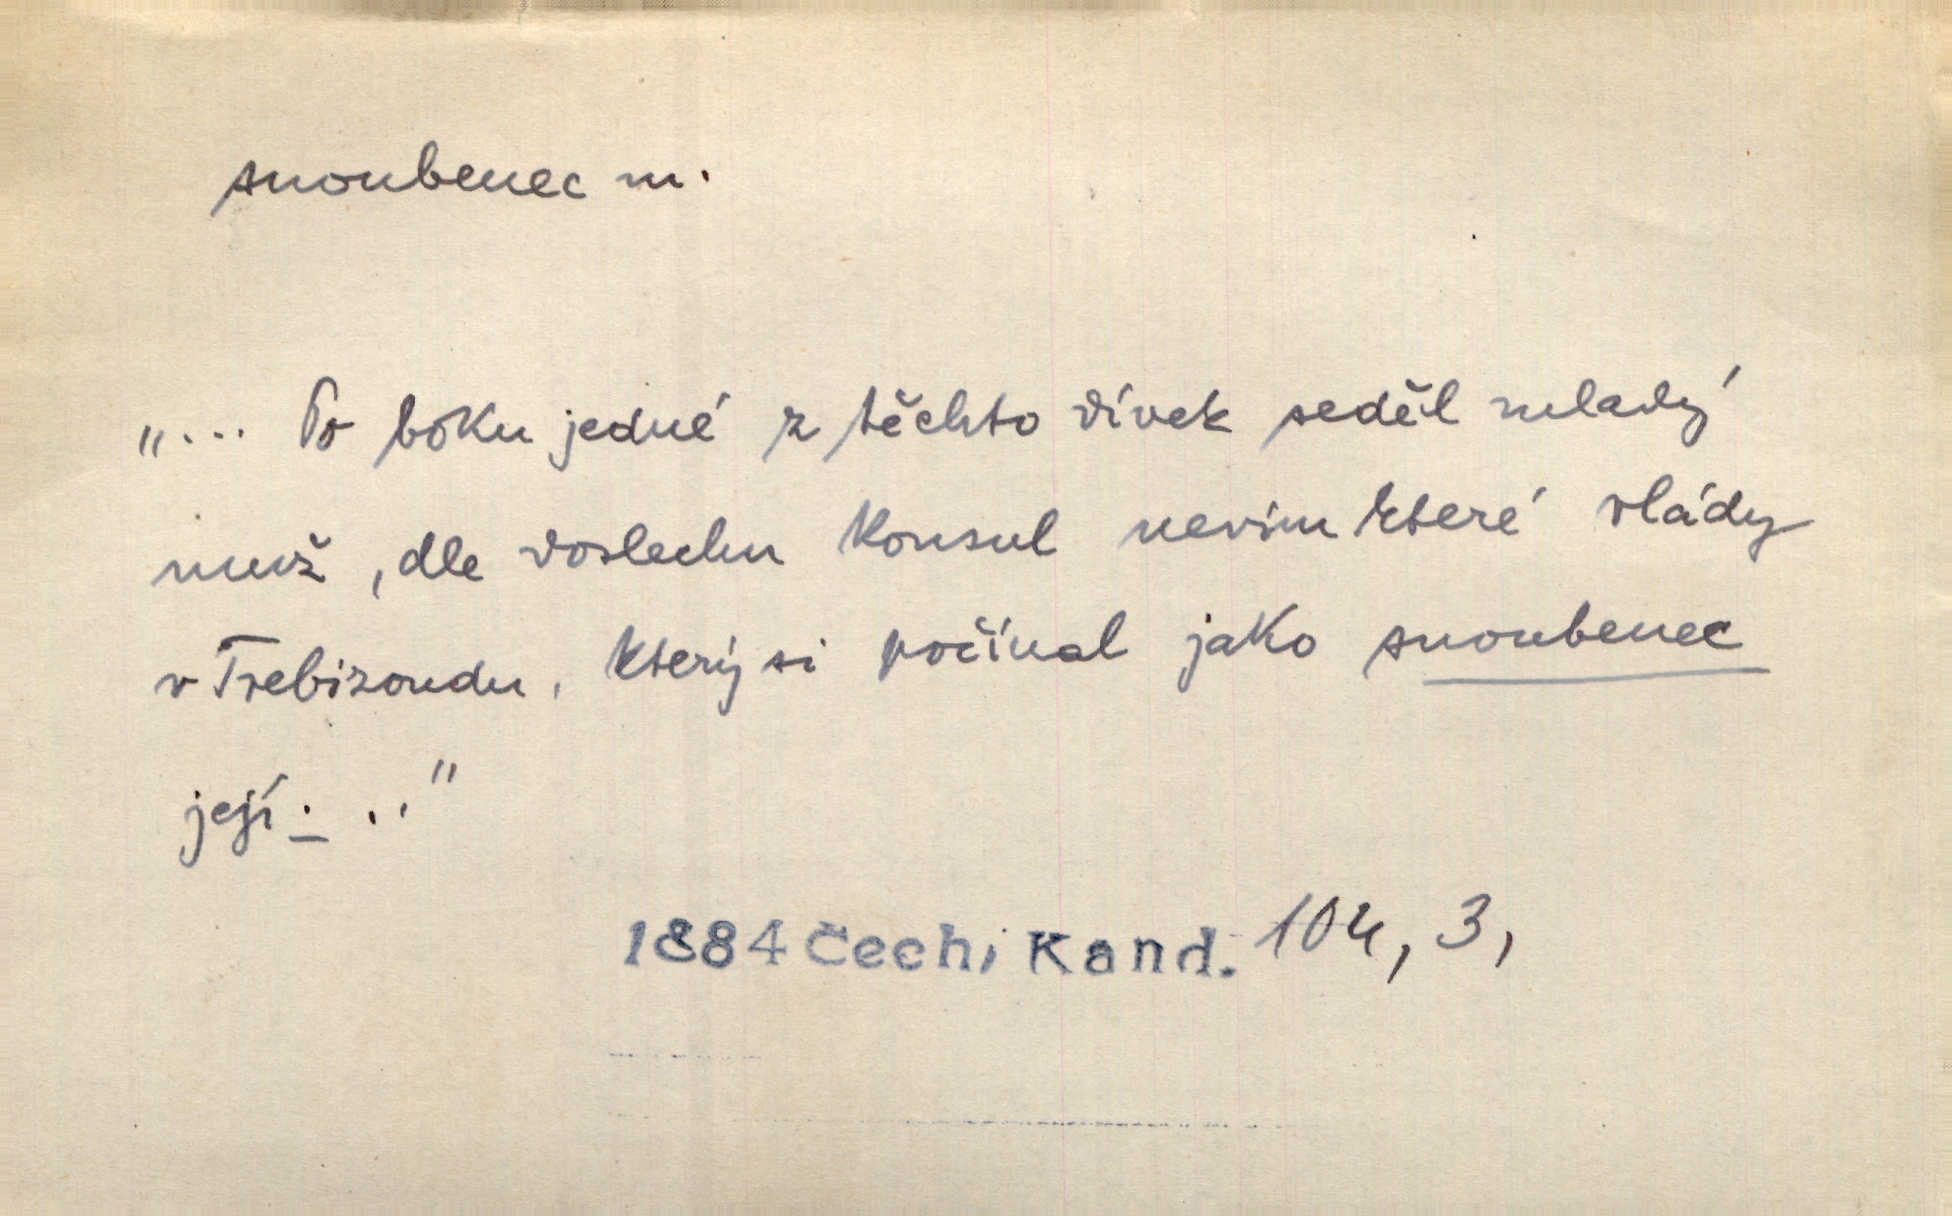 snoubenec m.
„... Po boku jedné z těchto dívek seděl mladý
muž, dle doslechu konsul nevím které vlády
v Trebizondu, který si počínal jako snoubenec
její. .."
1884 Čech, Kand. 104, 3,